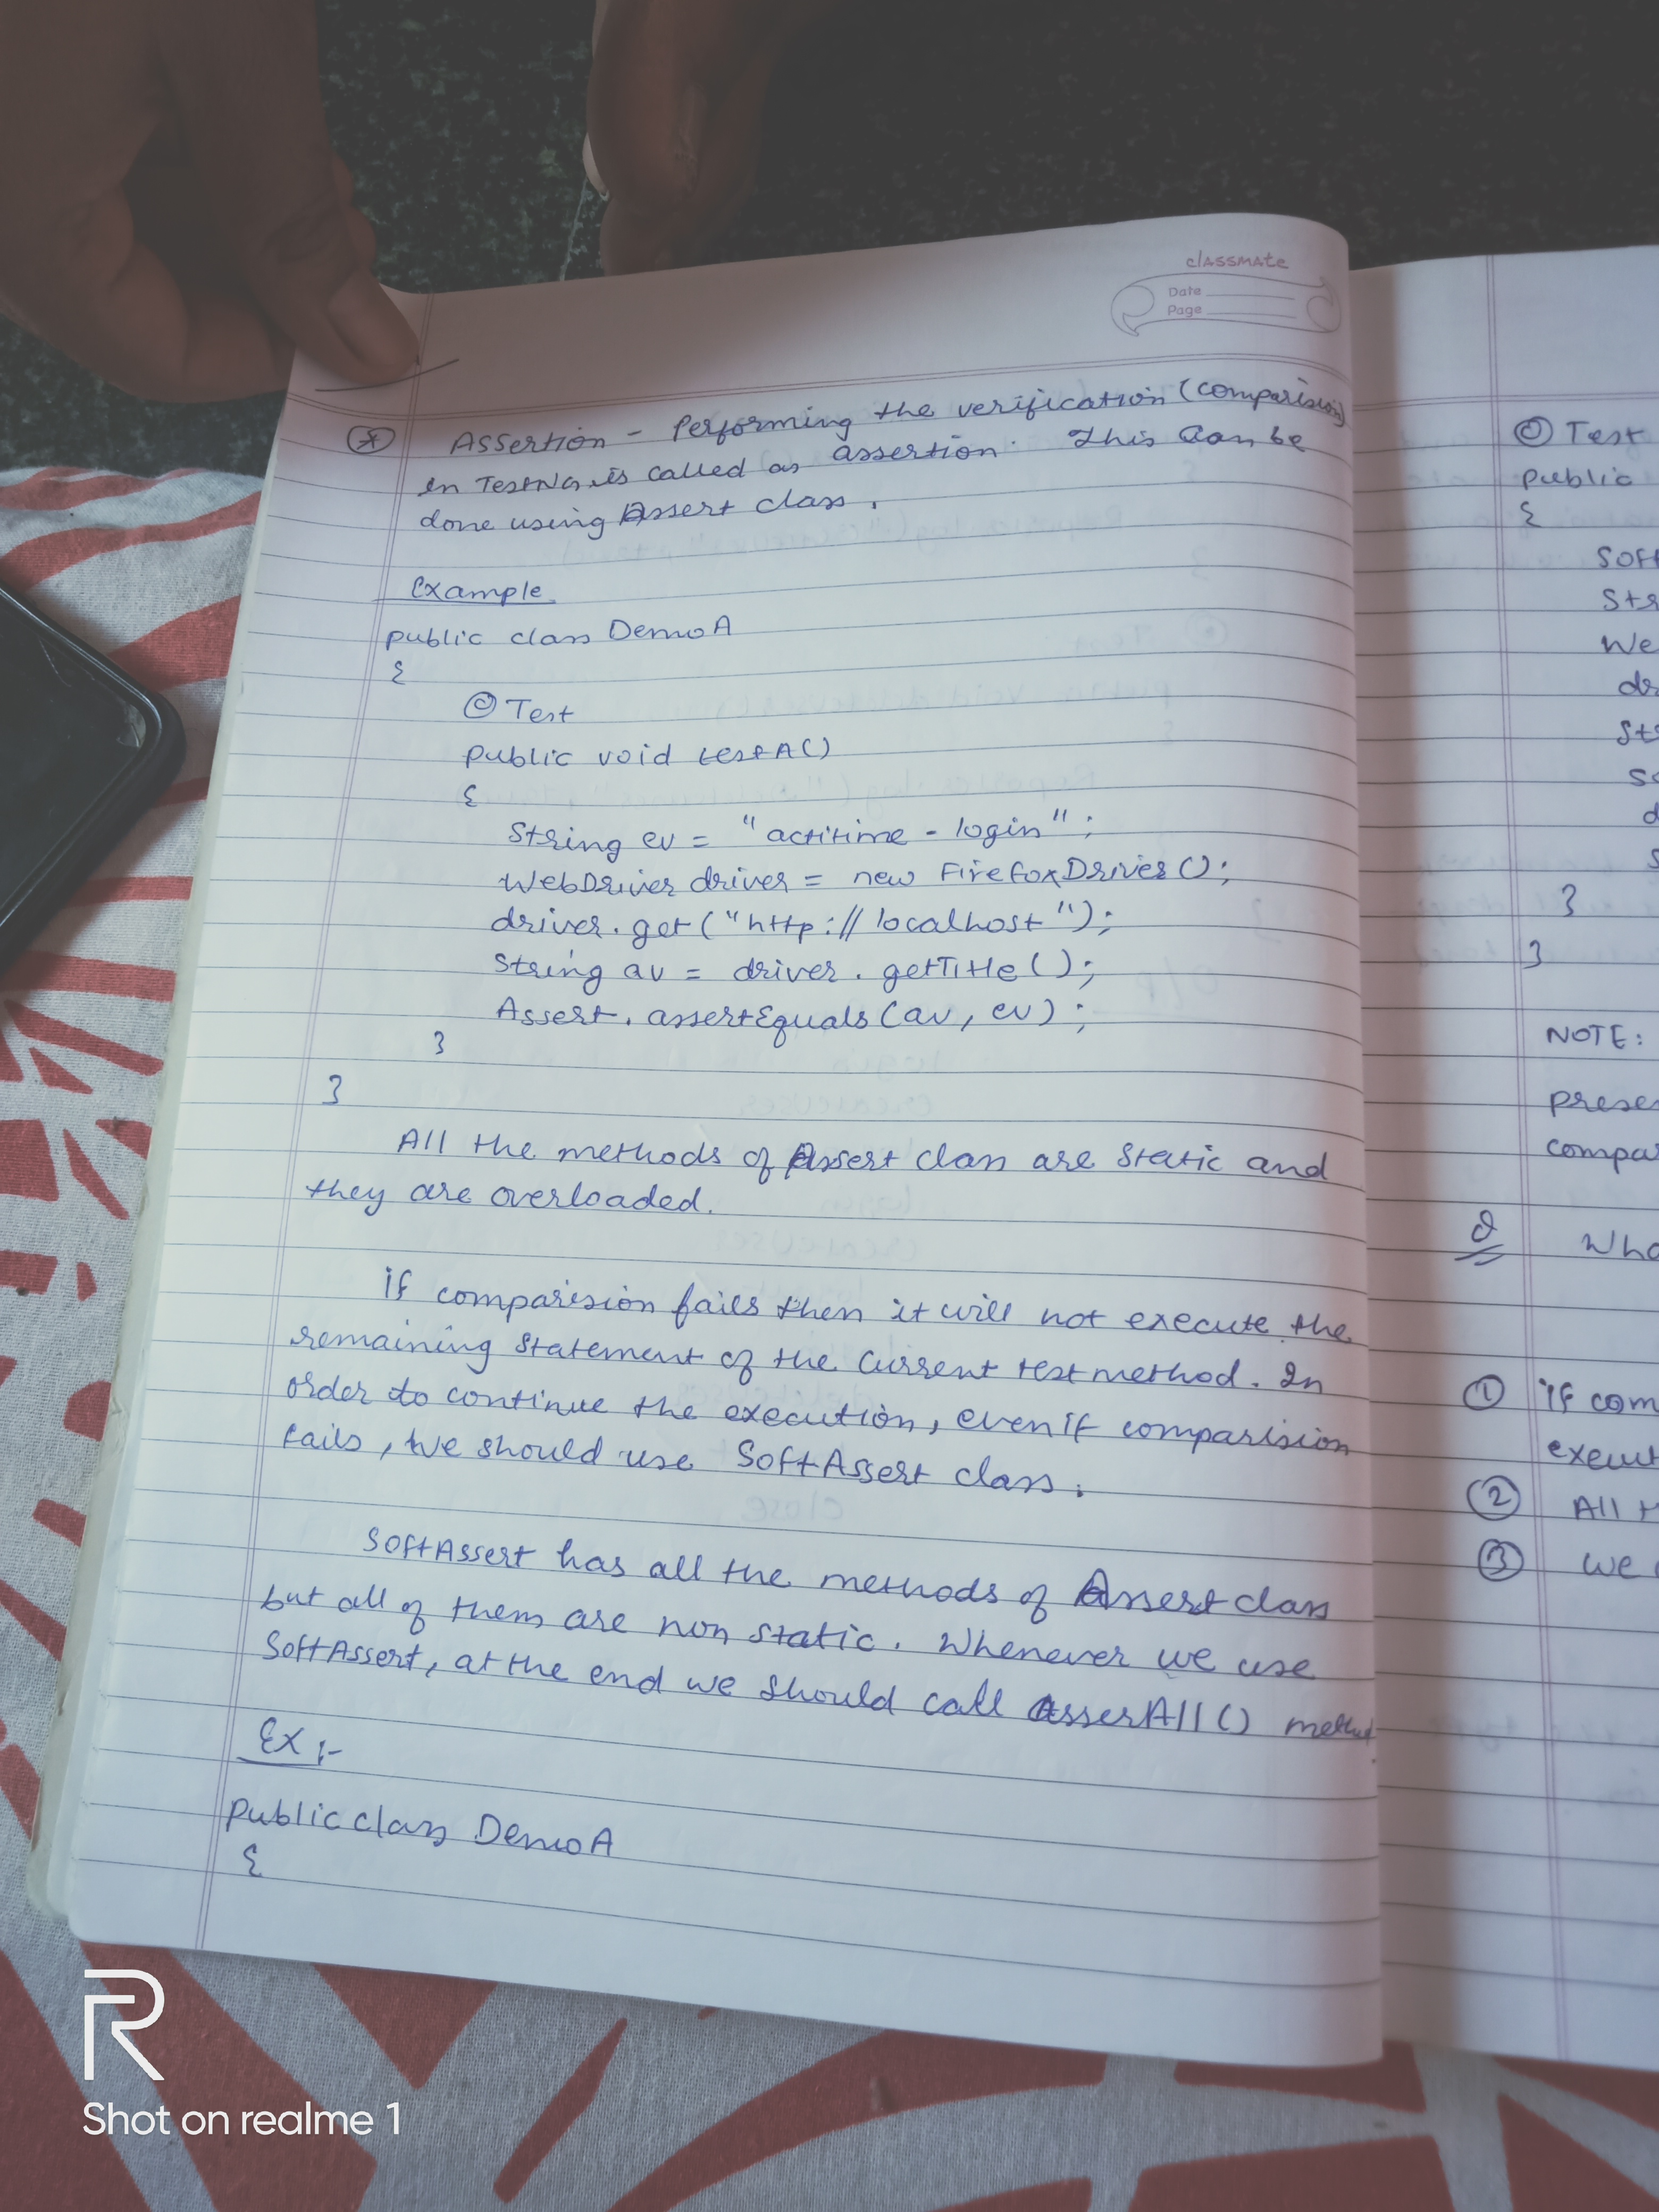 classmate
Date
Page
* Assertion - Performing the verification (comparision)
in TestNG is called as assertion. This can be
done using Assert class.
Example
public class DemoA
{
@Test
public void testA()
{
String ev = "actitime - login";
WebDriver driver = new FirefoxDriver();
driver.get("http://localhost");
String av = driver.getTitle();
Assert.assertEquals(av, ev);
}
}
All the methods of Assert class are static and
they are overloaded.
If comparision fails then it will not execute the
remaining statement of the current test method. In
order to continue the execution, even if comparision
fails, we should use SoftAssert class.
SoftAssert has all the methods of Assert class
but all of them are non static. Whenever we use
SoftAssert, at the end we should call AsserAll() method.
Ex:-
public class DemoA
{
@Test
public
{
Soft
Str
We
dr
Str
so
d
s
}
}
NOTE:
prese
compa
Q Wha
① if com
execut
② All t
③ we
R
Shot on realme 1